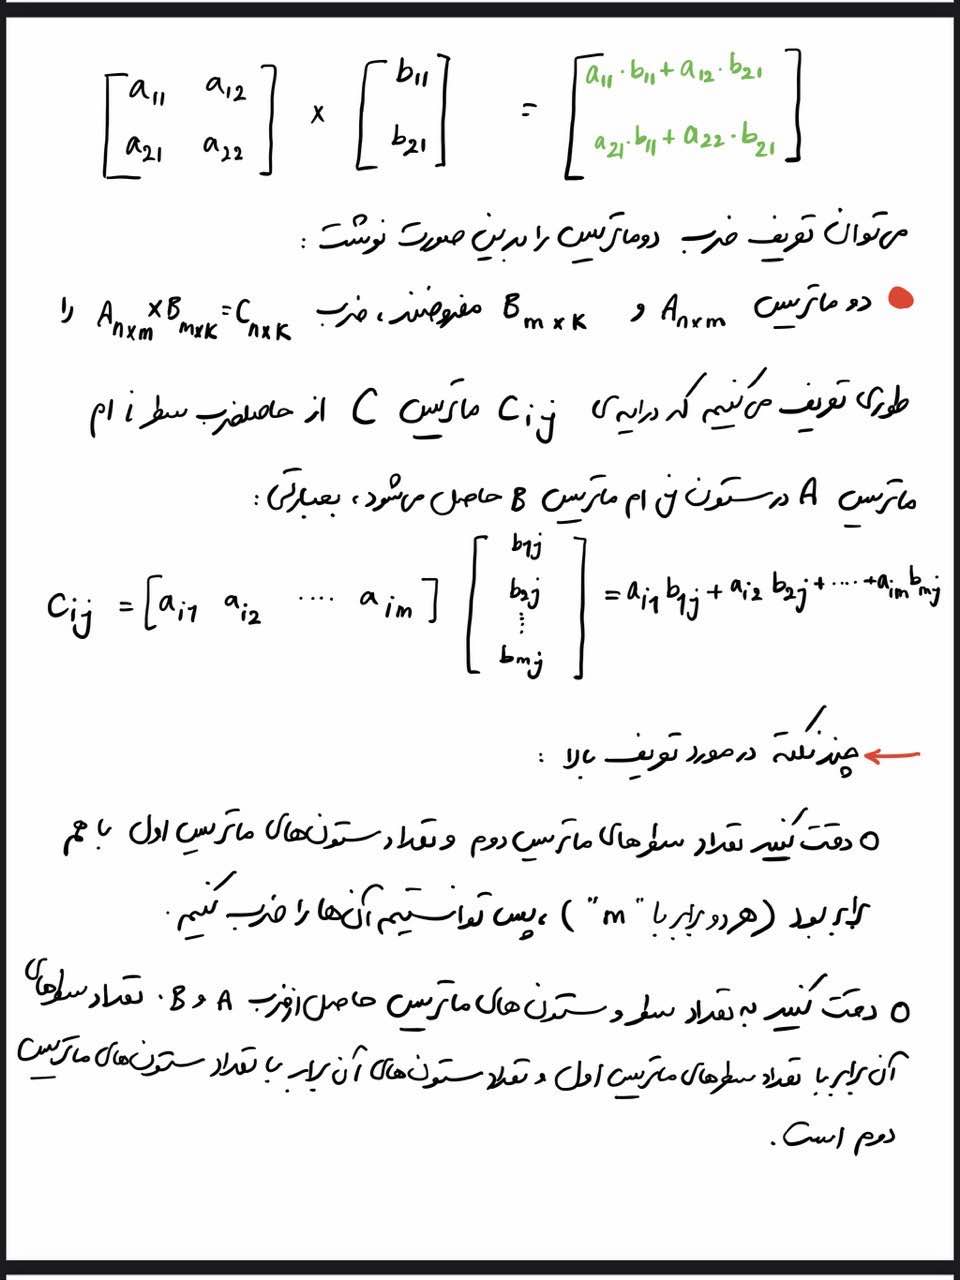 [a₁₁ a₁₂ ; a₂₁ a₂₂] × [b₁₁ ; b₂₁] = [a₁₁·b₁₁+a₁₂·b₂₁ ; a₂₁·b₁₁+a₂₂·b₂₁]
می‌توان تعریف ضرب دو ماتریس را بدین صورت نوشت :
دو ماتریس Aₙₓₘ و Bₘₓₖ مفروضند، ضرب Aₙₓₘ×Bₘₓₖ=Cₙₓₖ را
طوری تعریف می‌کنیم که درایه‌ی Cᵢⱼ ماتریس C از حاصلضرب سطر i ام
ماتریس A در ستون j ام ماتریس B حاصل می‌شود، بعبارتی :
Cᵢⱼ = [aᵢ₁ aᵢ₂ ···· aᵢₘ] [b₁ⱼ ; b₂ⱼ ; ⋮ ; bₘⱼ] = aᵢ₁b₁ⱼ+aᵢ₂b₂ⱼ+····+aᵢₘbₘⱼ
چند نکته در مورد تعریف بالا :
دقت کنید تعداد سطرهای ماتریس دوم و تعداد ستون‌های ماتریس اول با هم
برابر بود (هر دو برابر با "m")، پس توانستیم آن‌ها را ضرب کنیم.
دقت کنید به تعداد سطر و ستون های ماتریس حاصل از ضرب A و B. تعداد سطرهای
آن برابر با تعداد سطرهای ماتریس اول و تعداد ستون‌های آن برابر با تعداد ستون‌های ماتریس
دوم است.